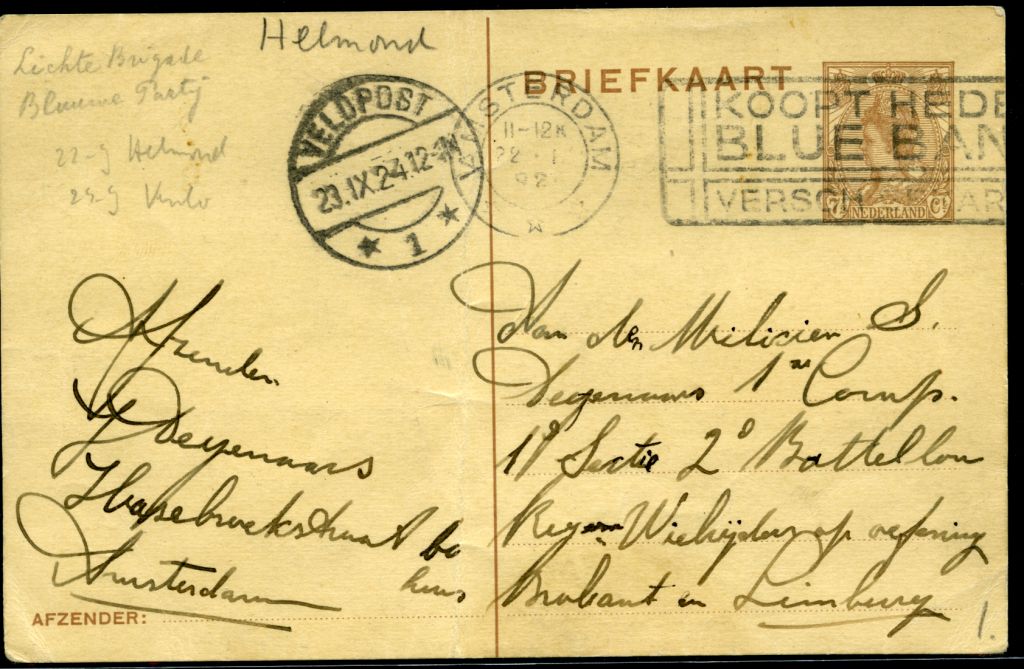 Helmond
Lichte Brigade
Blauwe Partij
22-9 Helmond
24-9 Venlo
VELDPOST
23.IX.24.12-1N
1
AMSTERDAM
11-12
BRIEFKAART
KOOPT HEDE
BLUE BAN
VERSCH AR
7½ NEDERLAND Ct
Afzender
Degenaars
Hasebroekstraat
huis
Amsterdam
AFZENDER:
Aan den Milicien S.
Degenaars 1e Comp.
1e Sectie 2e Battellon
Reg Wielrijders op oefening
Brabant en Limburg
1.